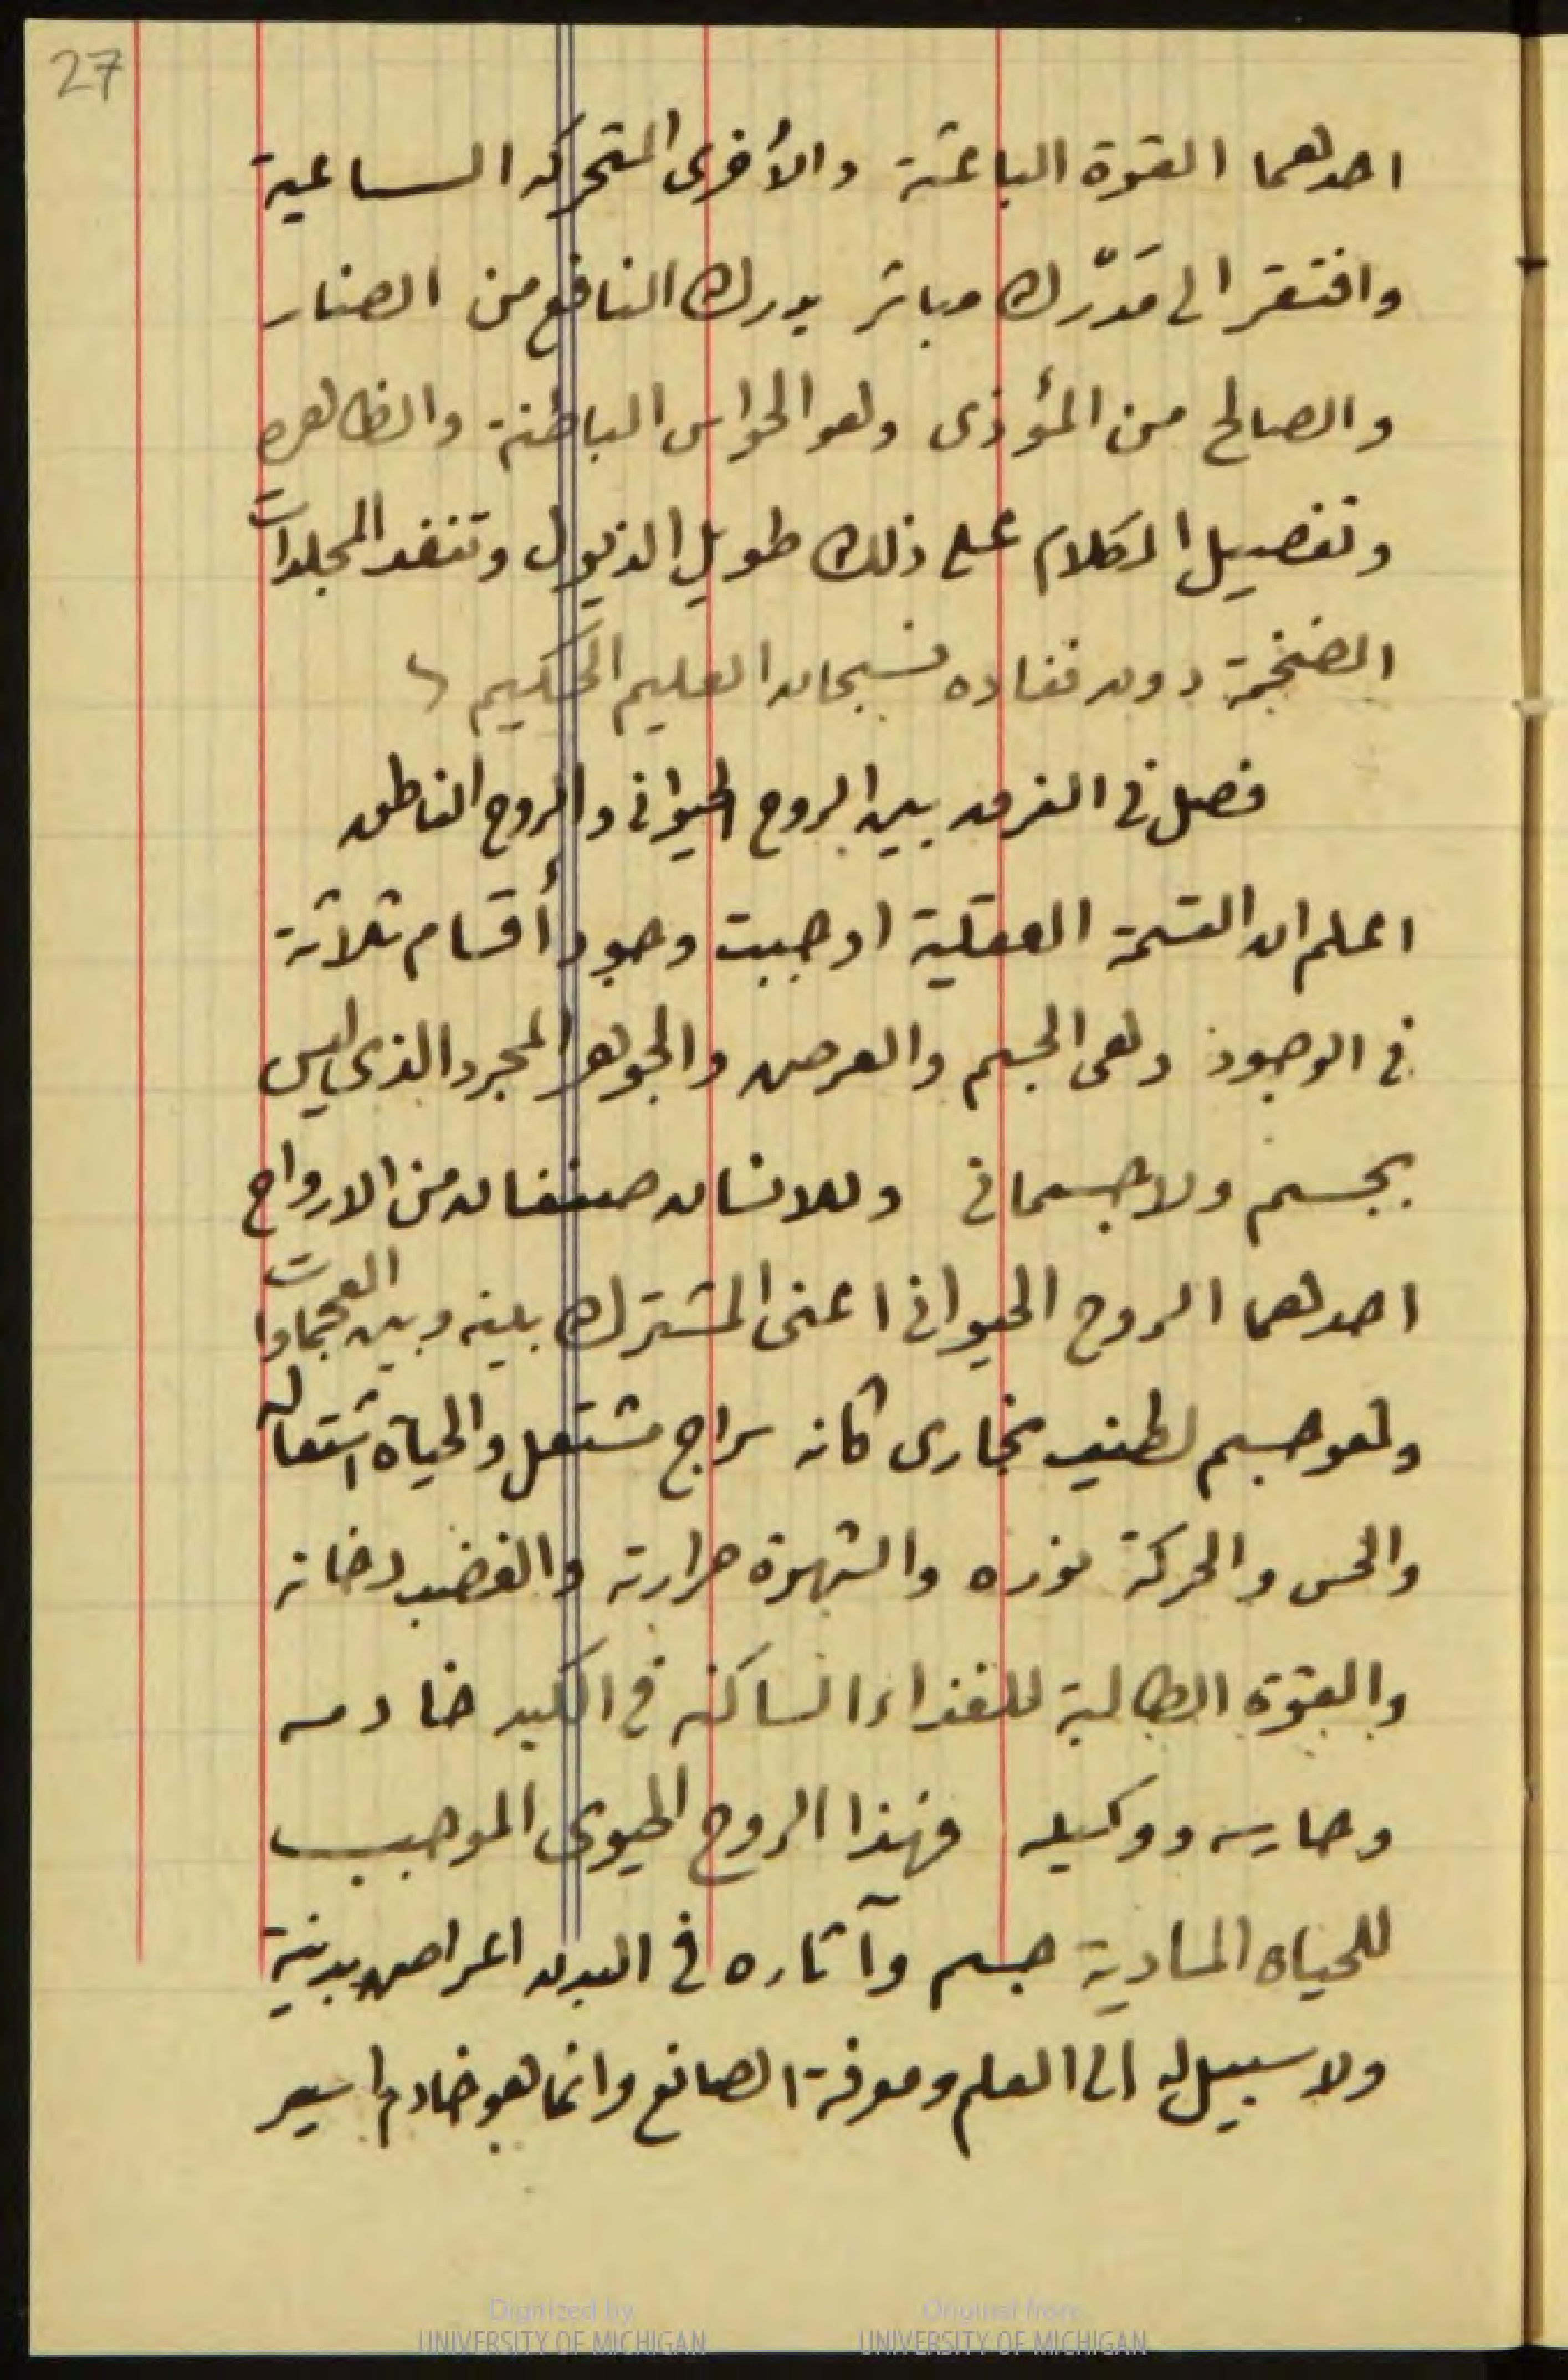 27
احدهما القوة الباعثة والأخرى المتحركه الساعية
وافتقر الى مَدّرك مباشر يدرك النافع من الضار
والصالح من المؤذى وهو الحواس الباطنة والظاهره
وتفصيل الكلام على ذلك طويل الذيول وتنفد المجلدات
الضخمة دون نفاده فسبحان العليم الحكيم
فصل فى الفرق بين الروح الحيوانى والروح الناطق
اعلم ان القسمة العقلية اوجبت وجود أقسام ثلاثة
فى الوجود وهى الجسم والعرض والجوهر المجرد الذى ليس
بجسم ولا جسمانى وللانسان صنفان من الارواح
احدهما الروح الحيوانى اعنى المشترك بينه وبين العجماوات
وهو جسم لطيف بخارى كانه سراج مشتعل والحياة اشتعاله
والحس والحركة نوره والشهوة حرارته والغضب دخانه
والقوة الطالبة للغذاء الساكنه فى الكبد خادمه
وحارسه ووكيله فهذا الروح الحيوى الموجب
للحياة المادية جسم وآثاره فى البدن اعراض بدنية
ولا سبيل له الى العلم ومعرفة الصانع وانما هو خادم اسير
Digitized by
UNIVERSITY OF MICHIGAN
Original from
UNIVERSITY OF MICHIGAN